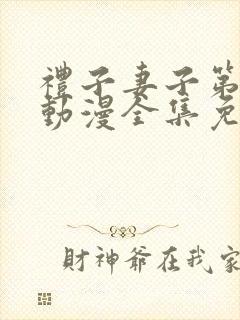 禮子妻子第
動漫全集免
財神爺在我家